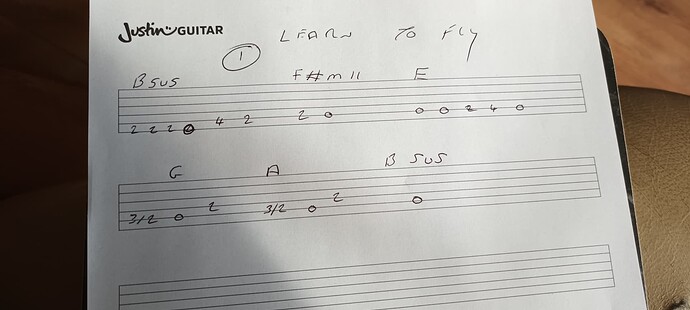 Justin GUITAR LEARN TO FLY
1
B sus F#m11 E
2 2 2 0 4 2 2 0 0 0 2 4 0
G A B SUS
3/2 0 2 3/2 0 2 0